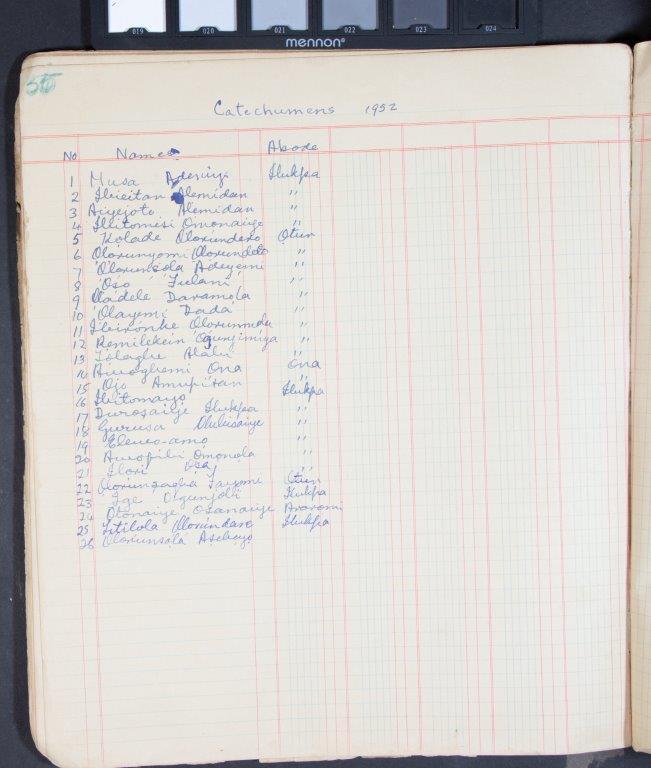 019 020 021 022 023 024
mennon
55
Catechumens 1952
No Names Abode
1 Musa Adeniyi Ilukpa
2 Ibieitan Alemidan "
3 Aiyejoto Alemidan "
4 Ibitomisi Omonaiye "
5 Kolade Olorundero Otun
6 Olorunyomi Olorundero "
7 Olorunsola Adeyemi "
8 Oso Fulani "
9 Oladele Daramola "
10 Olayemi Dada "
11 Ibironke Olorunnedu "
12 Remilekein Ogunjimiga "
13 Folagbe Alabi "
14 Awogbemi Ona Ona
15 Ojo Amupitan "
16 Ibitomayo Ilukpa
17 Durosaiye Ilukpa "
18 Gurusa "
19 Eleweo-amo "
20 Omonola "
21 Ilori "
22 Fayomi Otun
23 Ige Ogunjobi Ilukpa
24 Otonaiye Osanaiye Araromi
25 Titilola Olorundare Ilukpa
26 Olorunsola Asebayo